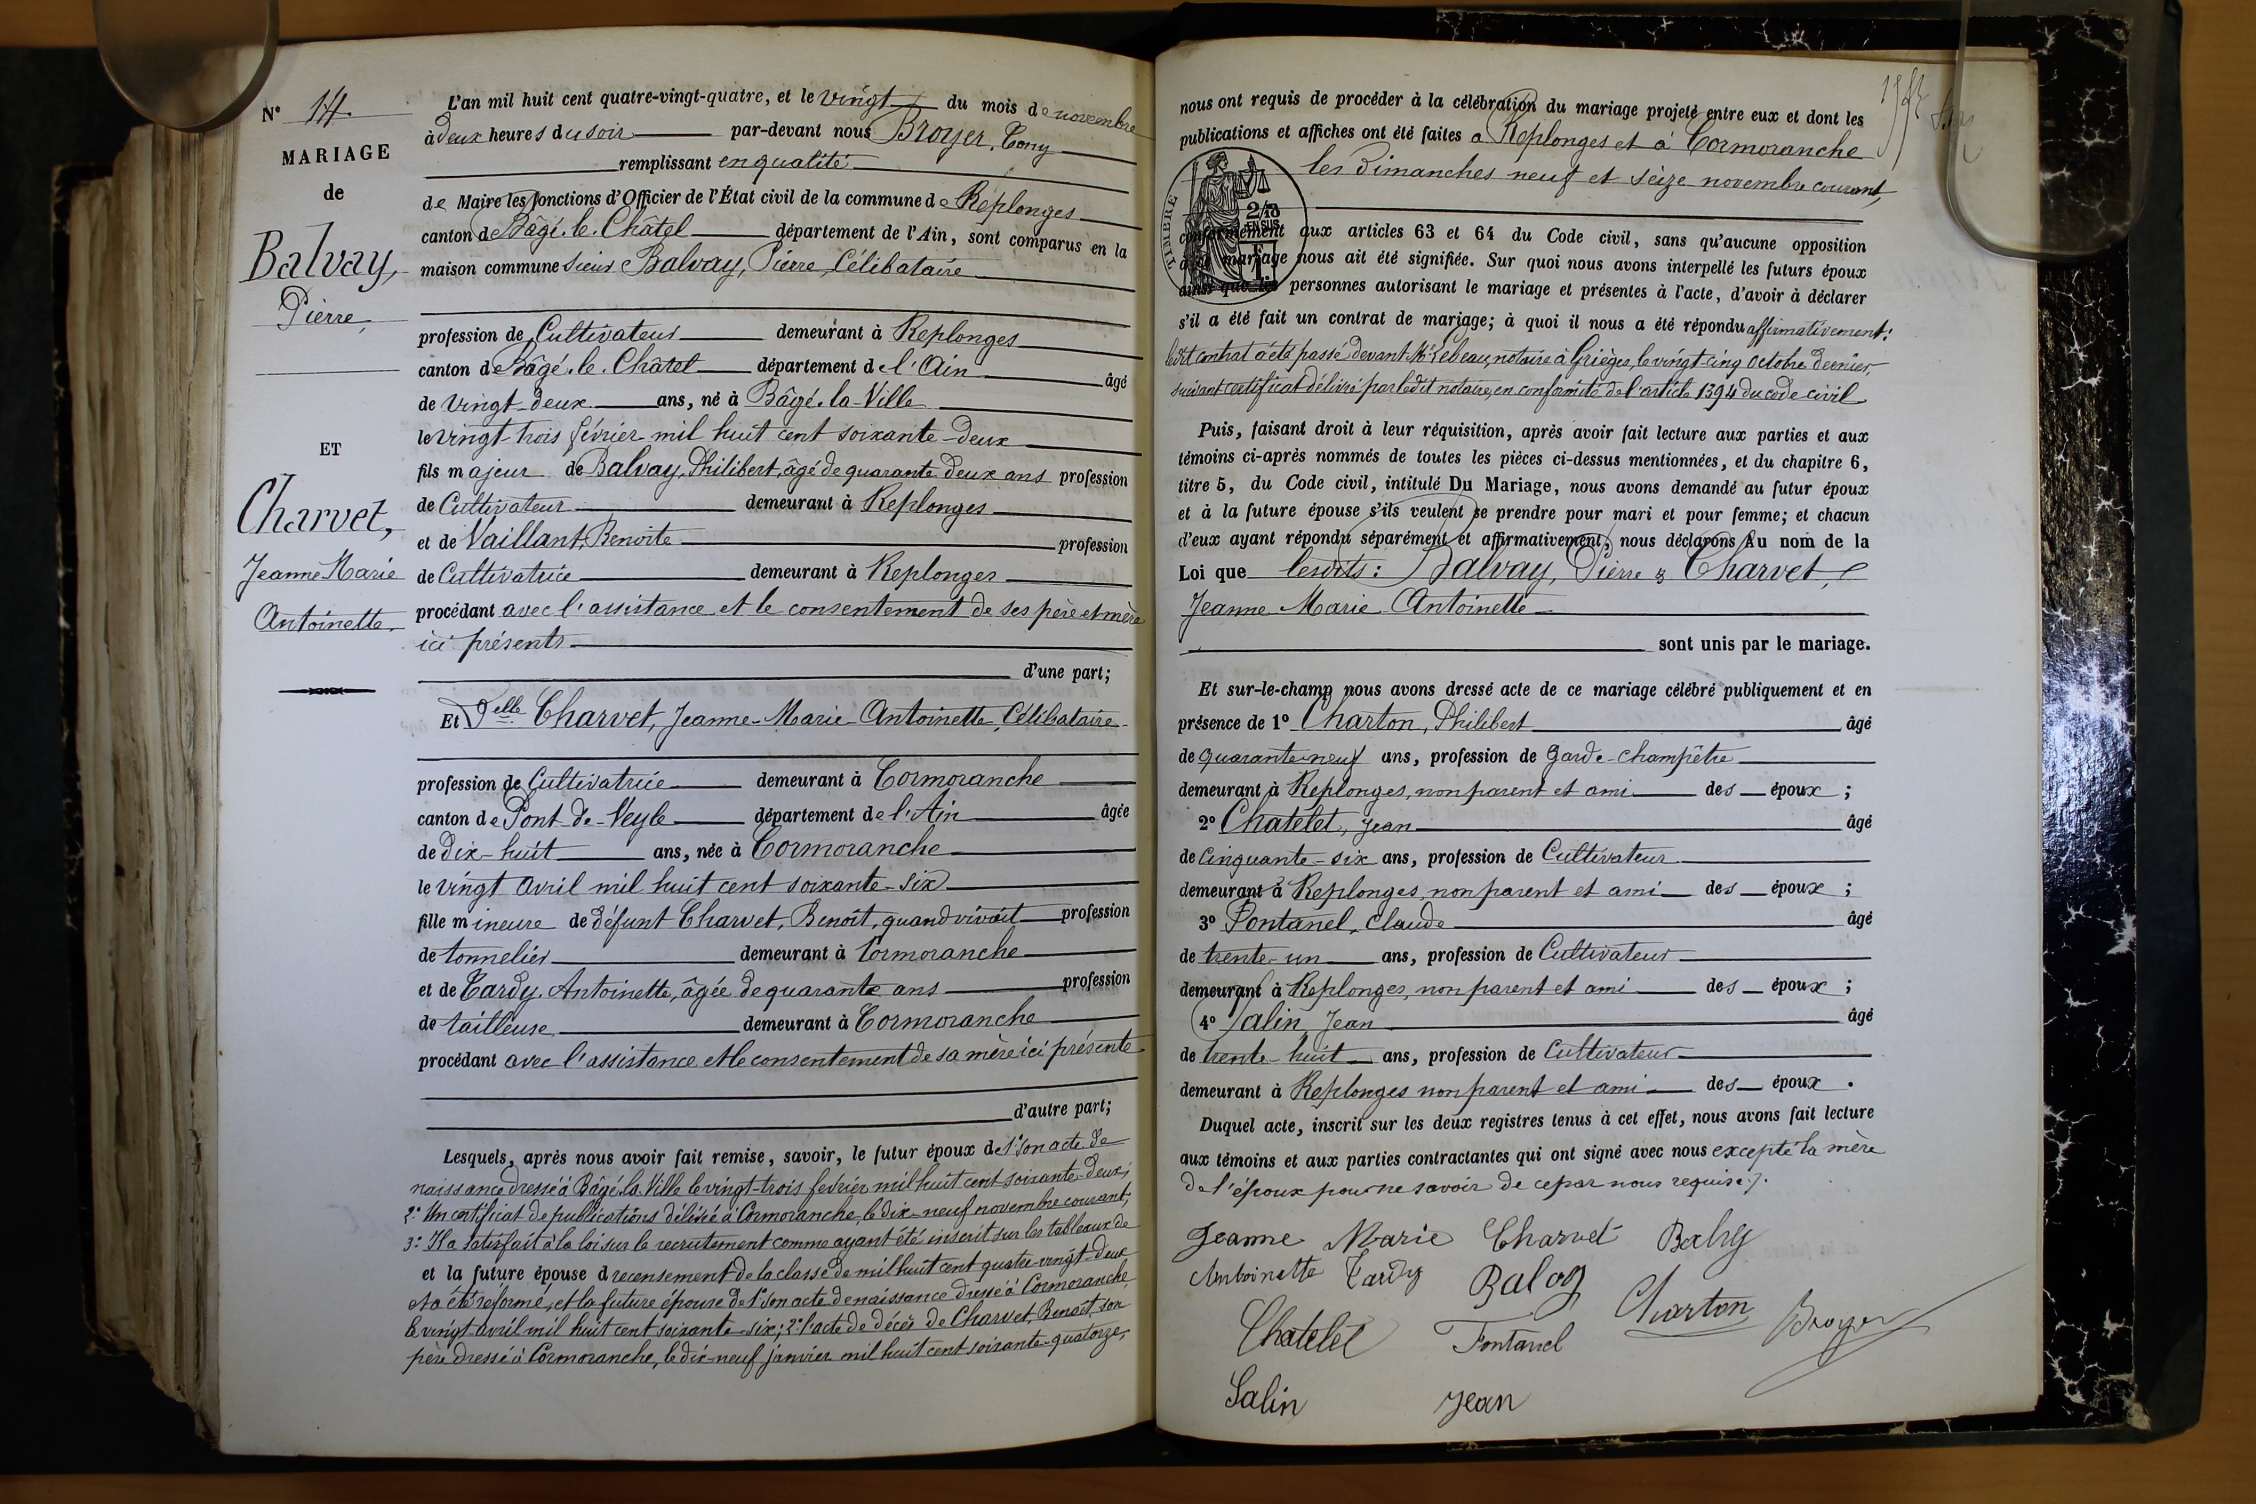 N° 14.
MARIAGE
de
Balvay,
Pierre,
ET
Charvet,
Jeanne Marie
Antoinette.
L'an mil huit cent quatre-vingt-quatre, et le vingt du mois de novembre
à deux heures du soir par-devant nous Broyer, Tony
remplissant en qualité
de Maire les fonctions d'Officier de l'État civil de la commune de Replonges
canton de Bâgé-le-Châtel département de l'Ain, sont comparus en la
maison commune sieur Balvay, Pierre, Célibataire
profession de Cultivateur demeurant à Replonges
canton de Bâgé-le-Châtel département de l'Ain âgé
de vingt-deux ans, né à Bâgé-la-Ville
le vingt-trois février mil huit cent soixante-deux
fils majeur de Balvay, Philibert, âgé de quarante deux ans profession
de Cultivateur demeurant à Replonges
et de Vaillant, Benoite profession
de Cultivatrice demeurant à Replonges
procédant avec l'assistance et le consentement de ses père et mère
ici présents
d'une part;
Et Delle Charvet, Jeanne-Marie-Antoinette, Célibataire
profession de Cultivatrice demeurant à Cormoranche
canton de Pont-de-Veyle département de l'Ain âgée
de dix-huit ans, née à Cormoranche
le vingt avril mil huit cent soixante-six
fille mineure de défunt Charvet, Benoît, quand vivait profession
de tonnelier demeurant à Cormoranche
et de Tardy, Antoinette, âgée de quarante ans profession
de tailleuse demeurant à Cormoranche
procédant avec l'assistance et le consentement de sa mère ici présente
d'autre part;
Lesquels, après nous avoir fait remise, savoir, le futur époux de 1° son acte de
naissance dressé à Bâgé-la-Ville le vingt-trois février mil huit cent soixante-deux;
2° Un certificat de publications délivré à Cormoranche, le dix-neuf novembre courant;
3° Il a satisfait à la loi sur le recrutement comme ayant été inscrit sur les tableaux de
et la future épouse d recensement de la classe de mil huit cent quatre-vingt-deux
et a été réformé, et la future épouse de 1° son acte de naissance dressé à Cormoranche
le vingt avril mil huit cent soixante-six; 2° l'acte de décès de Charvet, Benoît, son
père dressé à Cormoranche, le dix-neuf janvier mil huit cent soixante-quatorze,
nous ont requis de procéder à la célébration du mariage projeté entre eux et dont les
publications et affiches ont été faites à Replonges et à Cormoranche
les dimanches neuf et seize novembre courant,
TIMBRE
2/10
EN SUS
1 F.
conformément aux articles 63 et 64 du Code civil, sans qu'aucune opposition
à ce mariage nous ait été signifiée. Sur quoi nous avons interpellé les futurs époux
ainsi que les personnes autorisant le mariage et présentes à l'acte, d'avoir à déclarer
s'il a été fait un contrat de mariage; à quoi il nous a été répondu affirmativement:
ledit contrat a été passé devant Me Lebeau, notaire à Grièges, le vingt-cinq octobre dernier,
suivant certificat délivré par ledit notaire, en conformité de l'article 1394 du code civil
Puis, faisant droit à leur réquisition, après avoir fait lecture aux parties et aux
témoins ci-après nommés de toutes les pièces ci-dessus mentionnées, et du chapitre 6,
titre 5, du Code civil, intitulé Du Mariage, nous avons demandé au futur époux
et à la future épouse s'ils veulent se prendre pour mari et pour femme; et chacun
d'eux ayant répondu séparément et affirmativement, nous déclarons Au nom de la
Loi que lesdits: Balvay, Pierre & Charvet,
Jeanne-Marie-Antoinette
sont unis par le mariage.
Et sur-le-champ nous avons dressé acte de ce mariage célébré publiquement et en
présence de 1° Charton, Philibert âgé
de quarante-neuf ans, profession de Garde-champêtre
demeurant à Replonges, non parent et ami des époux;
2° Chatelet, Jean âgé
de cinquante-six ans, profession de Cultivateur
demeurant à Replonges, non parent et ami des époux;
3° Fontanel, Claude âgé
de trente-un ans, profession de Cultivateur
demeurant à Replonges, non parent et ami des époux;
4° Salin, Jean âgé
de trente-huit ans, profession de Cultivateur
demeurant à Replonges non parent et ami des époux.
Duquel acte, inscrit sur les deux registres tenus à cet effet, nous avons fait lecture
aux témoins et aux parties contractantes qui ont signé avec nous excepté la mère
de l'époux pour ne savoir de ce par nous requise.
Jeanne Marie Charvet
Antoinette Tardy
Charton Broyer
Chatelet Fontanel
Salin Jean